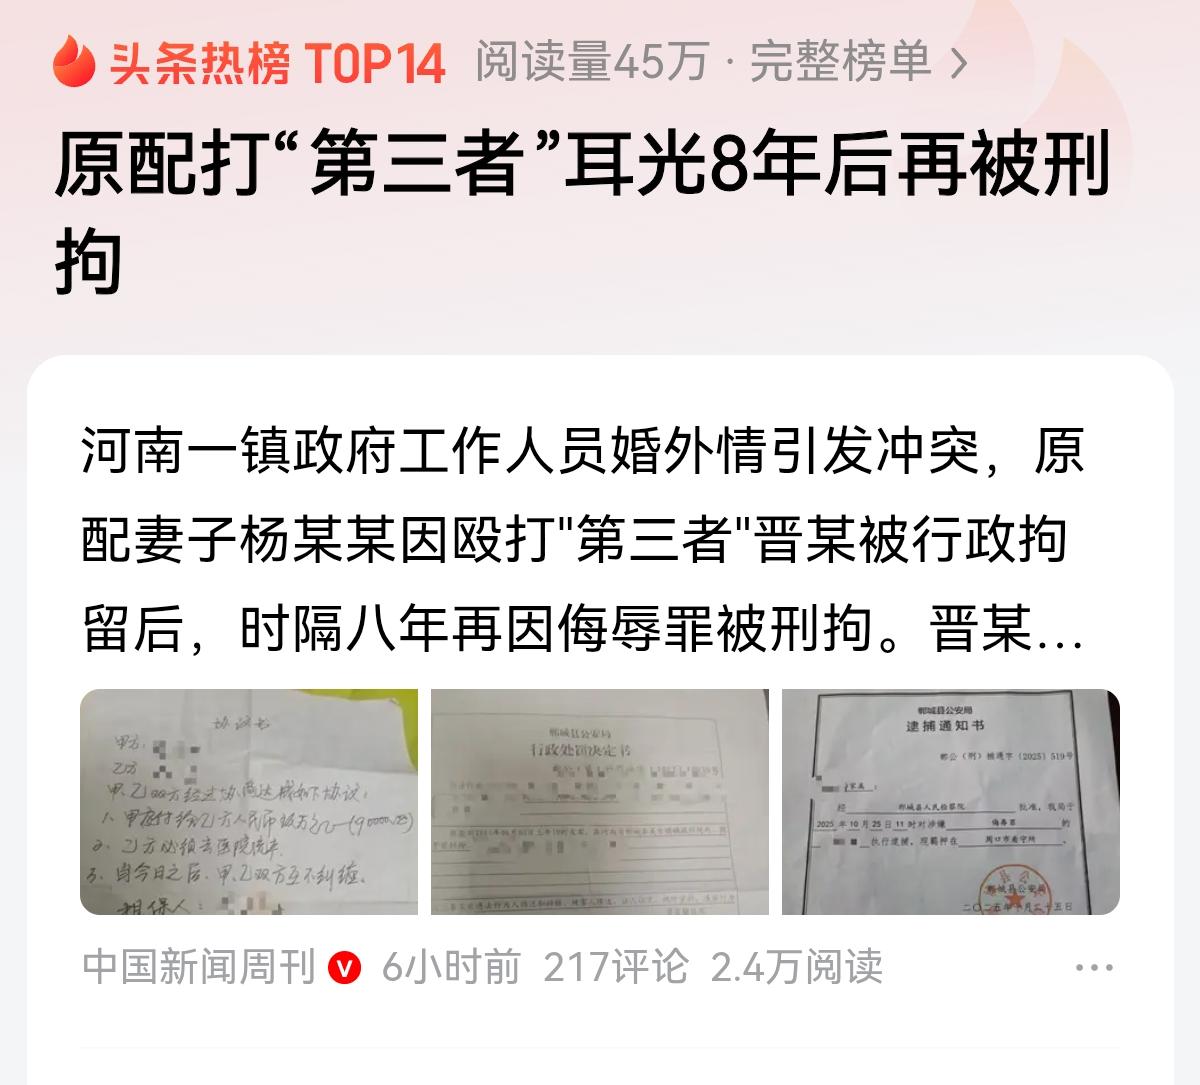 头条热榜 TOP14 阅读量45万 · 完整榜单 >
原配打“第三者”耳光8年后再被刑
拘
河南一镇政府工作人员婚外情引发冲突，原
配妻子杨某某因殴打"第三者"晋某被行政拘
留后，时隔八年再因侮辱罪被刑拘。晋某...
协议书
甲方:
乙方
甲、乙双方经过协商达成如下协议:
2、乙方必须去医院流产.
3、自今日之后、甲、乙双方互不纠缠。
担保人:
郸城县公安局
行政处罚决定书
郸城县公安局
逮捕通知书
郸公（刑）捕通字〔2025〕519号
经 郸城县人民检察院 批准，我局于
2025 年 10 月 25 日 11 时对涉嫌 侮辱罪 的
执行逮捕，现羁押在 周口市看守所 。
郸城县公安局
二〇二五年十月二十五日
中国新闻周刊 V 6小时前 217评论 2.4万阅读 ...